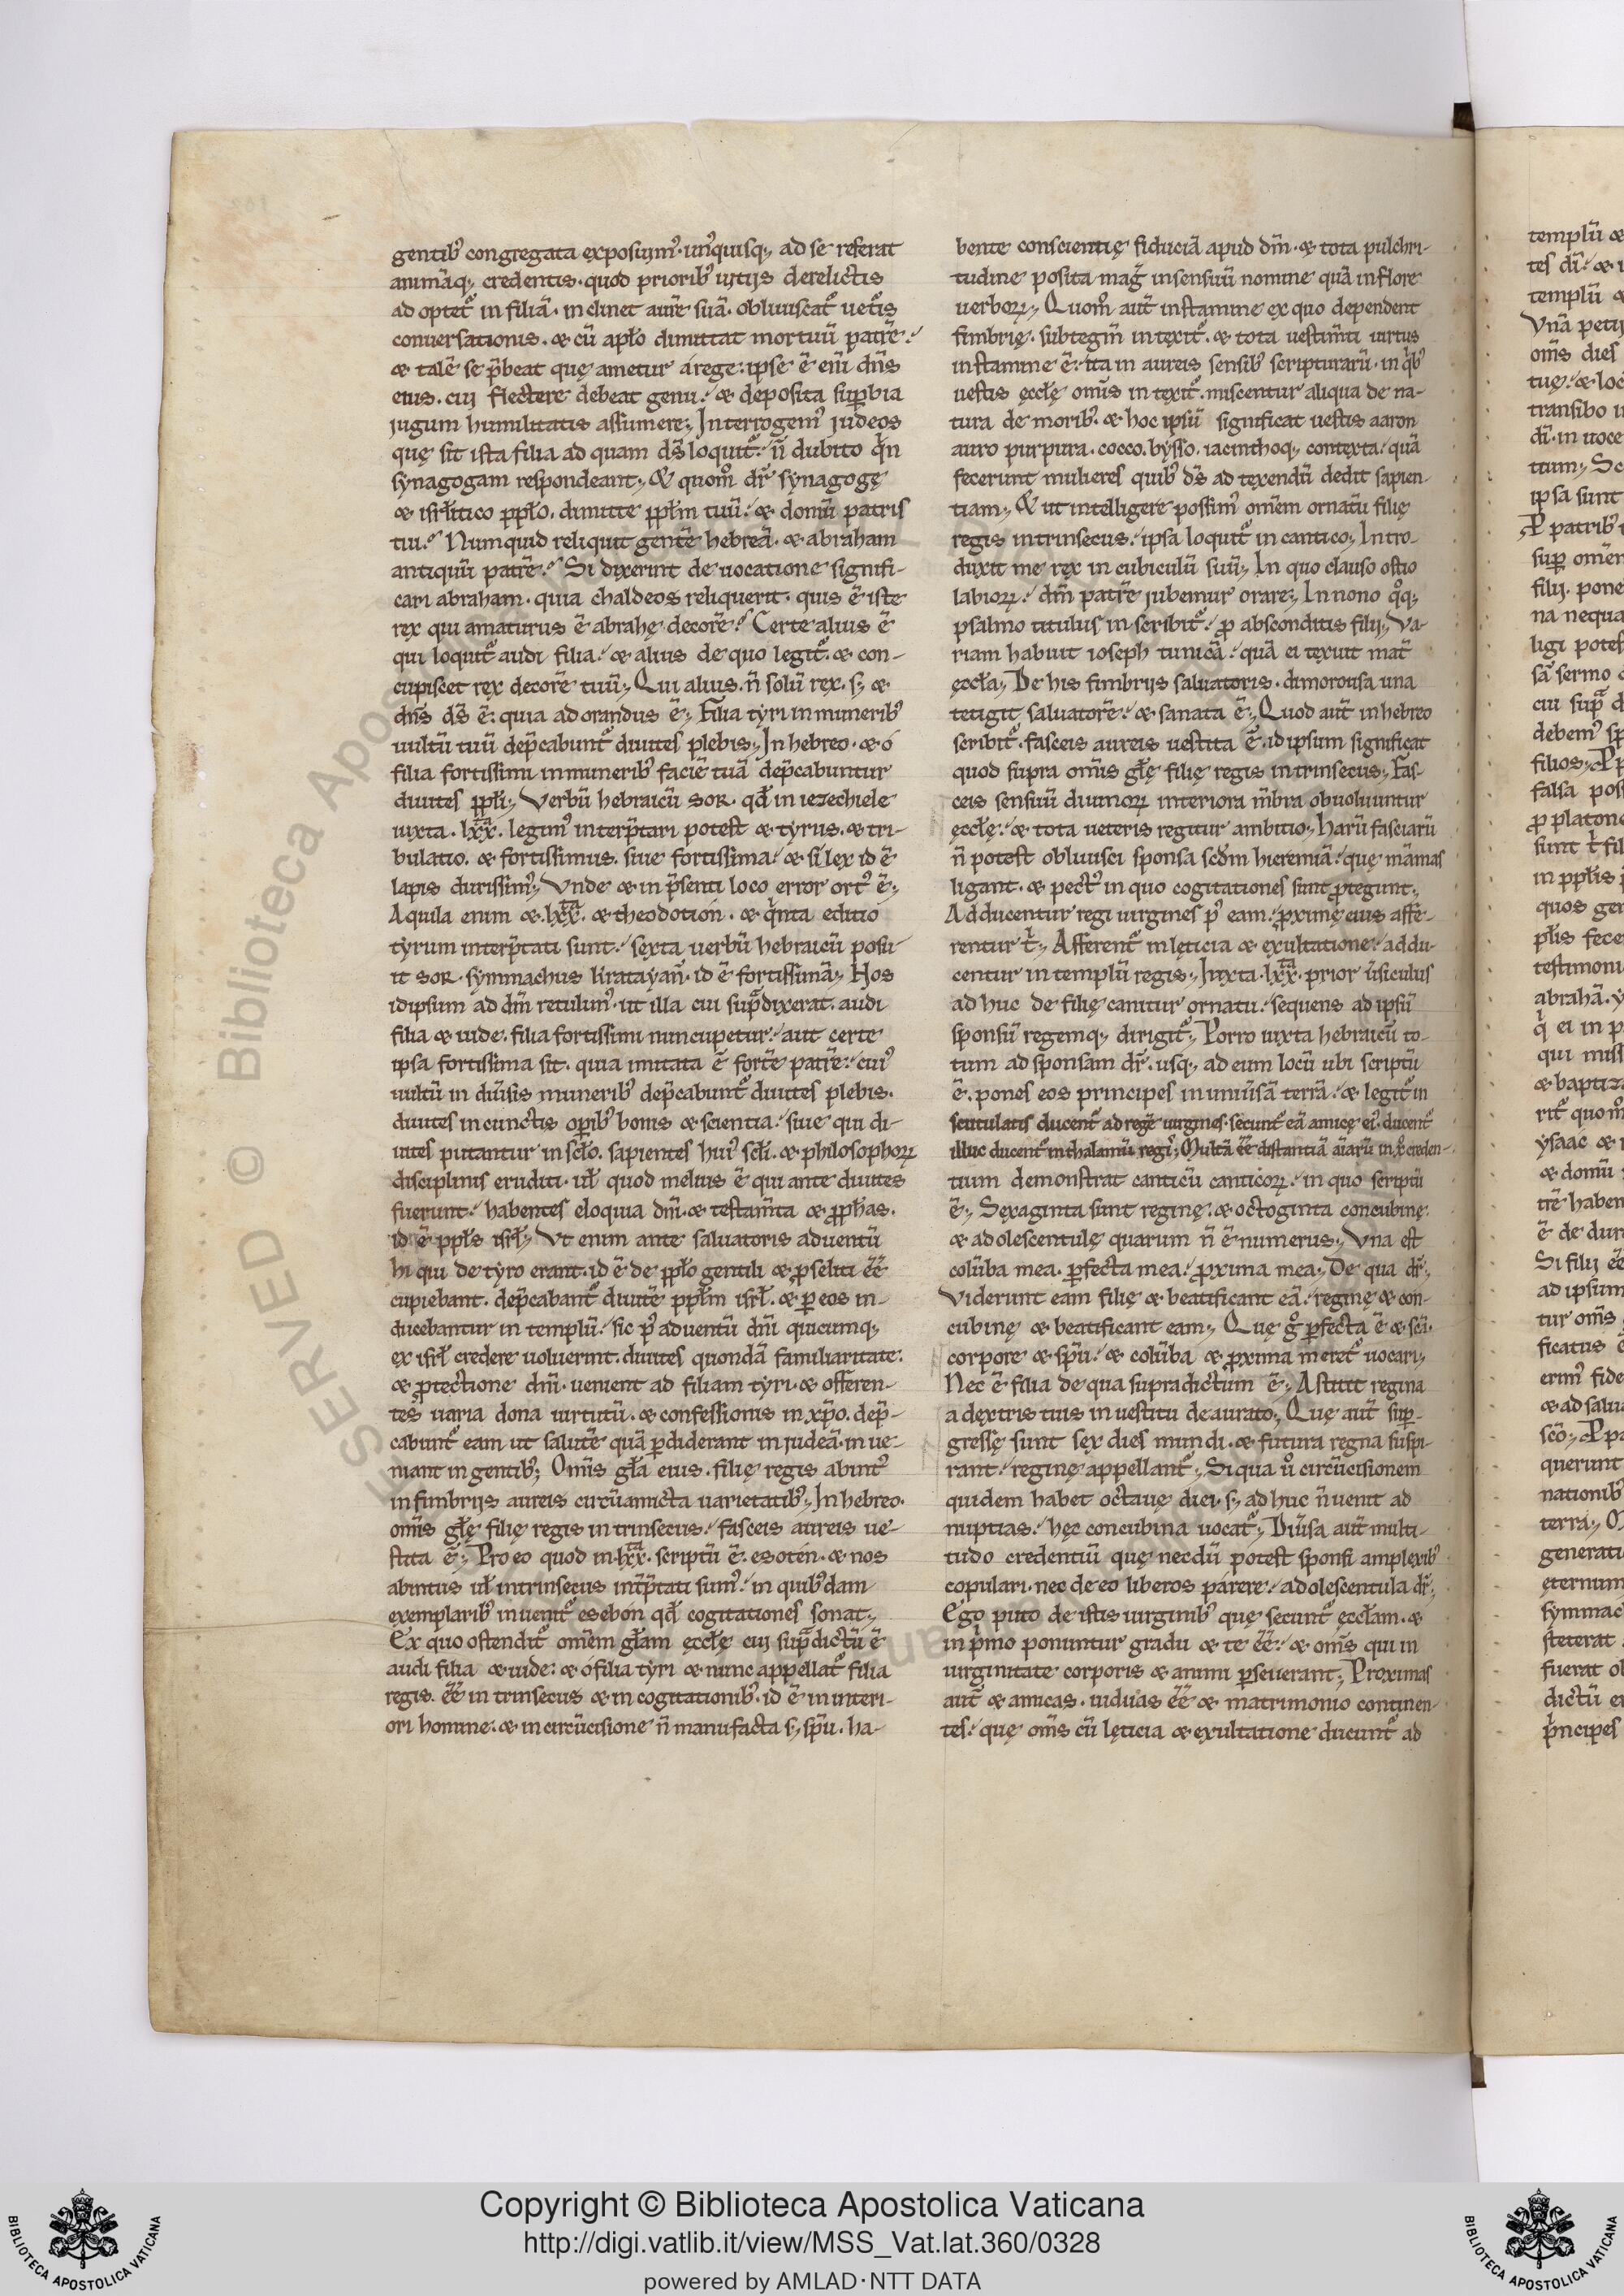 gentib᾿ congregata exposuim᾿· un᾿quisq; ad se referat
animāq; credentis· quod priorib᾿ uitijs derelictis
ad optet᷑ in filiā· inclinet aurē suā· obliuiscat᷑ uet᷑is
conuersationis· & cū apło dimittat mortuū patrē.
& talē se p̄beat que ametur á rege: ipse ē eni̅ dn̄s
eius· cui flectere debeat genu: & deposita sup̱bia
jugum humilitatis assumere; Interrogem᾿ judeos
quę sit ista filia ad quam ds̄ loquit᷑: n̄ dubito qͥn
synagogam respondeant; & quom̊ dr̄ synagogę
& isrł̄itico ppło· dimitte ppłm tuū: & domū patris
tui: Numquid reliquit gentē hebreā· & abraham
antiquū patrē: Si dixerint de uocatione signifi-
cari abraham· quia chaldeos reliquerit· quis ē iste
rex qui amaturus ē abrahę decorē: Certe alius ē
qui loquit᷑ audi filia: & alius de quo legit᷑· & con-
cupiscet rex decorē tuū; Qui alius· n̄ solū rex· s; &
dn̄s ds̄ ē: quia adorandus ē; Filia tyri in munerib᾿
uultū tuū dep̄cabunt᷑ diuites plebis; In hebreo· & ó
filia fortissimi in munerib᾿ faciē tuā dep̄cabuntur
diuites ppłi; Verbū hebraicū sor· qđ in iezechiele
iuxta· lxx· legim᾿ interp̄tari potest & tyrus· & tri-
bulatio· & fortissimus· siue fortissima: & silex id ē
lapis durissim᾿; Vnde & in p̄senti loco error ort᾿ ē;
Aquila enim & lxx· & theodotión· & qͥnta editio
tyrum interp̄tati sunt: sexta uerbū hebraicū posu-
it sor· symmachus kratayan̄· id ē fortissimā; Hos
idipsum ad dm̄ retulim᾿· ut illa cui supᷓ dixerat· audi
filia & uide· filia fortissimi nuncupetur: aut certe
ipsa fortissima sit· quia imitata ē fortē patrē: cui᾿
uultū in diūsis munerib᾿ dep̄cabunt᷑ diuites plebis·
diuites in cunctis op̱ib᾿ bonis & scientia: siue qui di-
uites putantur in scło· sapientes hui᾿ scłi· & philosophoꝝ
disciplinis eruditi· uł quod melius ē qui ante diuites
fuerunt: habentes eloquia dn̄i· & testam̄ta & ꝓphas·
id ē ppłs isrł; Vt enim ante saluatoris aduentū
hi qui de tyro erant· id ē de ppło gentili & ꝓseliti eē̄
cupiebant· dep̄cabant᷑ diuitē ppłm isrł· & ꝑ eos in-
ducebantur in templū: sic p᾿ aduentū dn̄i quicumq;
ex isrł credere uoluerint· diuites quondā familiaritate:
& ꝓtectione dn̄i· uenient ad filiam tyri· & offeren-
tes uaria dona uirtutū· & confessionis in xp̄o· dep̄-
cabunt᷑ eam ut salutē quā ꝑdiderant in judeā· inue-
niant in gentib᾿; Om̄s gła eius· filię regis abint᾿
in fimbrijs aureis circūamicta uarietatib᾿; In hebreo·
om̄s głę filię regis intrinsecus: fasceis aureis ue-
stita ē; Pro eo quod in· lxx· scriptū ē· esotén· & nos
abintus uł intrinsecus int᷑p̄tati sum᾿: in quib᾿dam
exemplarib᾿ inuenit᷑ esebón qđ cogitationes sonat;
Ex quo ostendit᷑ omēm głam ęccłę cui supᷓdictū ē
audi filia & uide: & ó filia tyri & nunc appellat᷑ filia
regis· eē̄ intrinsecus & in cogitationib᾿· id ē in interi-
ori homine: & in circūcisione n̄ manufacta s; sp̄u· ha-
bente conscientię fiduciā apud dm̄· & tota pulchri-
tudine posita mag̃ in sensuū nomine quā in flore
uerboꝝ; Quom̊ aut̄ in stamine ex quo dependent
fimbrię· subtegm̄ intexit᷑· & tota uestim̄ti uirtus
in stamine ē: ita in aureis sensib᾿ scripturarū· in qͥb᾿
uestis ęccłę om̄is intexit᷑· miscentur aliqua de na-
tura de morib᾿· & hoc ipsū significat uestis aaron
auro purpura· cocco· bysso· iacinthoq; contexta: quā
fecerunt mulieres quib᾿ ds̄ ad texendū dedit sapien-
tiam; & ut intelligere possim᾿ omēm ornatū filię
regis intrinsecus: ipsa loquit᷑ in cantico; Intro-
duxit me rex in cubiculū suū; In quo clauso ostio
labioꝝ: dm̄ patrē jubemur orare; In nono qͦq;
psalmo titulus inscribit᷑: ꝓ absconditis filij; Va-
riam habuit ioseph tunicā: quā ei texuit mat̄
ęccła; De his fimbrijs saluatoris· &imorousa una
tetigit saluatorē: & sanata ē; Quod aut̄ in hebreo
scribit᷑· fasceis aureis uestita ē· id ipsum significat
quod supra om̄is głę filię regis intrinsecus; Fas-
ceis sensuū diuinoꝝ interiora m̄bra obuoluuntur
ęccłę: & tota ueteris regitur ambitio; Harū fasciarū
n̄ potest obliuisci sponsa scđm hieremiā: quę māmas
ligant· & pect᾿ in quo cogitationes sunt ꝓtegunt;
Adducentur regi uirgines p᾿ eam: ꝓximę eius affe-
rentur t̄; Afferent᷑ in lęticia & exultatione: addu-
centur in templū regis; Iuxta· lxx· prior ūsiculus
ad huc de filię canitur ornatu: sequens ad ipsū
sponsū regemq; dirigit᷑; Porro iuxta hebraicū to-
tum ad sponsam dr̄· usq; ad eum locū ubi scriptū
ē· pones eos principes in uniūsā terrā: & legit᷑ in
scutulatis ducent᷑ ad regē uirgines· secunt᷑ eā amicę ei᾿· ducent᷑
illuc ducent᷑ in thalamū regi᾿; Multā eē̄ distantiā aīarū in xͦ creden-
tium demonstrat canticū canticoꝝ: in quo scriptū
ē; Sexaginta sunt reginę: & octoginta concubinę:
& adolescentulę quarum n̄ ē numerus; Vna est
colūba mea· ꝑfecta mea: ꝓxima mea; De qua dr̄;
Viderunt eam filię & beatificant eā: reginę & con-
cubinę & beatificant eam; Quę gͦ ꝑfecta ē & scā·
corpore & sp̄u: & colūba & ꝓxima meret᷑ uocari;
Nec ē filia de qua supradictum ē; Astitit regina
a dextris tuis in uestitu deaurato; Quę aut̄ sup̱-
gressę sunt sex dies mundi· & futura regna suspi-
rant: reginę appellant᷑; Si qua ů circūcisionem
quidem habet octauę diei· s; ad huc n̄ uenit ad
nuptias: hęc concubina uocat᷑; Diūsa aut̄ multi-
tudo credentiū que necdū potest sponsi amplexib᾿
copulari· nec de eo liberos párere: adolescentula dr̄;
Ego puto de istis uirginib᾿ quę secunt᷑ ęccłam· &
in pͥmo ponuntur gradu & te eē̄: & om̄s qui in
uirginitate corporis & animi ꝑseuerant; Proximas
aut̄ & amicas· uiduas eē̄ & matrimonio continen-
tes: quę om̄s cū lęticia & exultatione ducunt᷑ ad
Copyright © Biblioteca Apostolica Vaticana
http://digi.vatlib.it/view/MSS_Vat.lat.360/0328
powered by AMLAD·NTT DATA
BIBLIOTECA APOSTOLICA VATICANA
BIBLIOTECA APOSTOLICA VATICANA